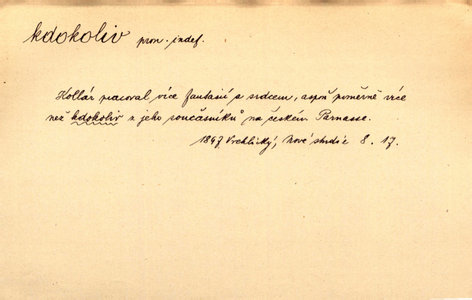 kdokoliv pron. indef.
Hollár pracoval více fantasií a srdcem, aspoň poměrně více
než kdokoliv z jeho současníků na českém Parnasse.
1897 Vrchlický, Nové studie 8. 17.